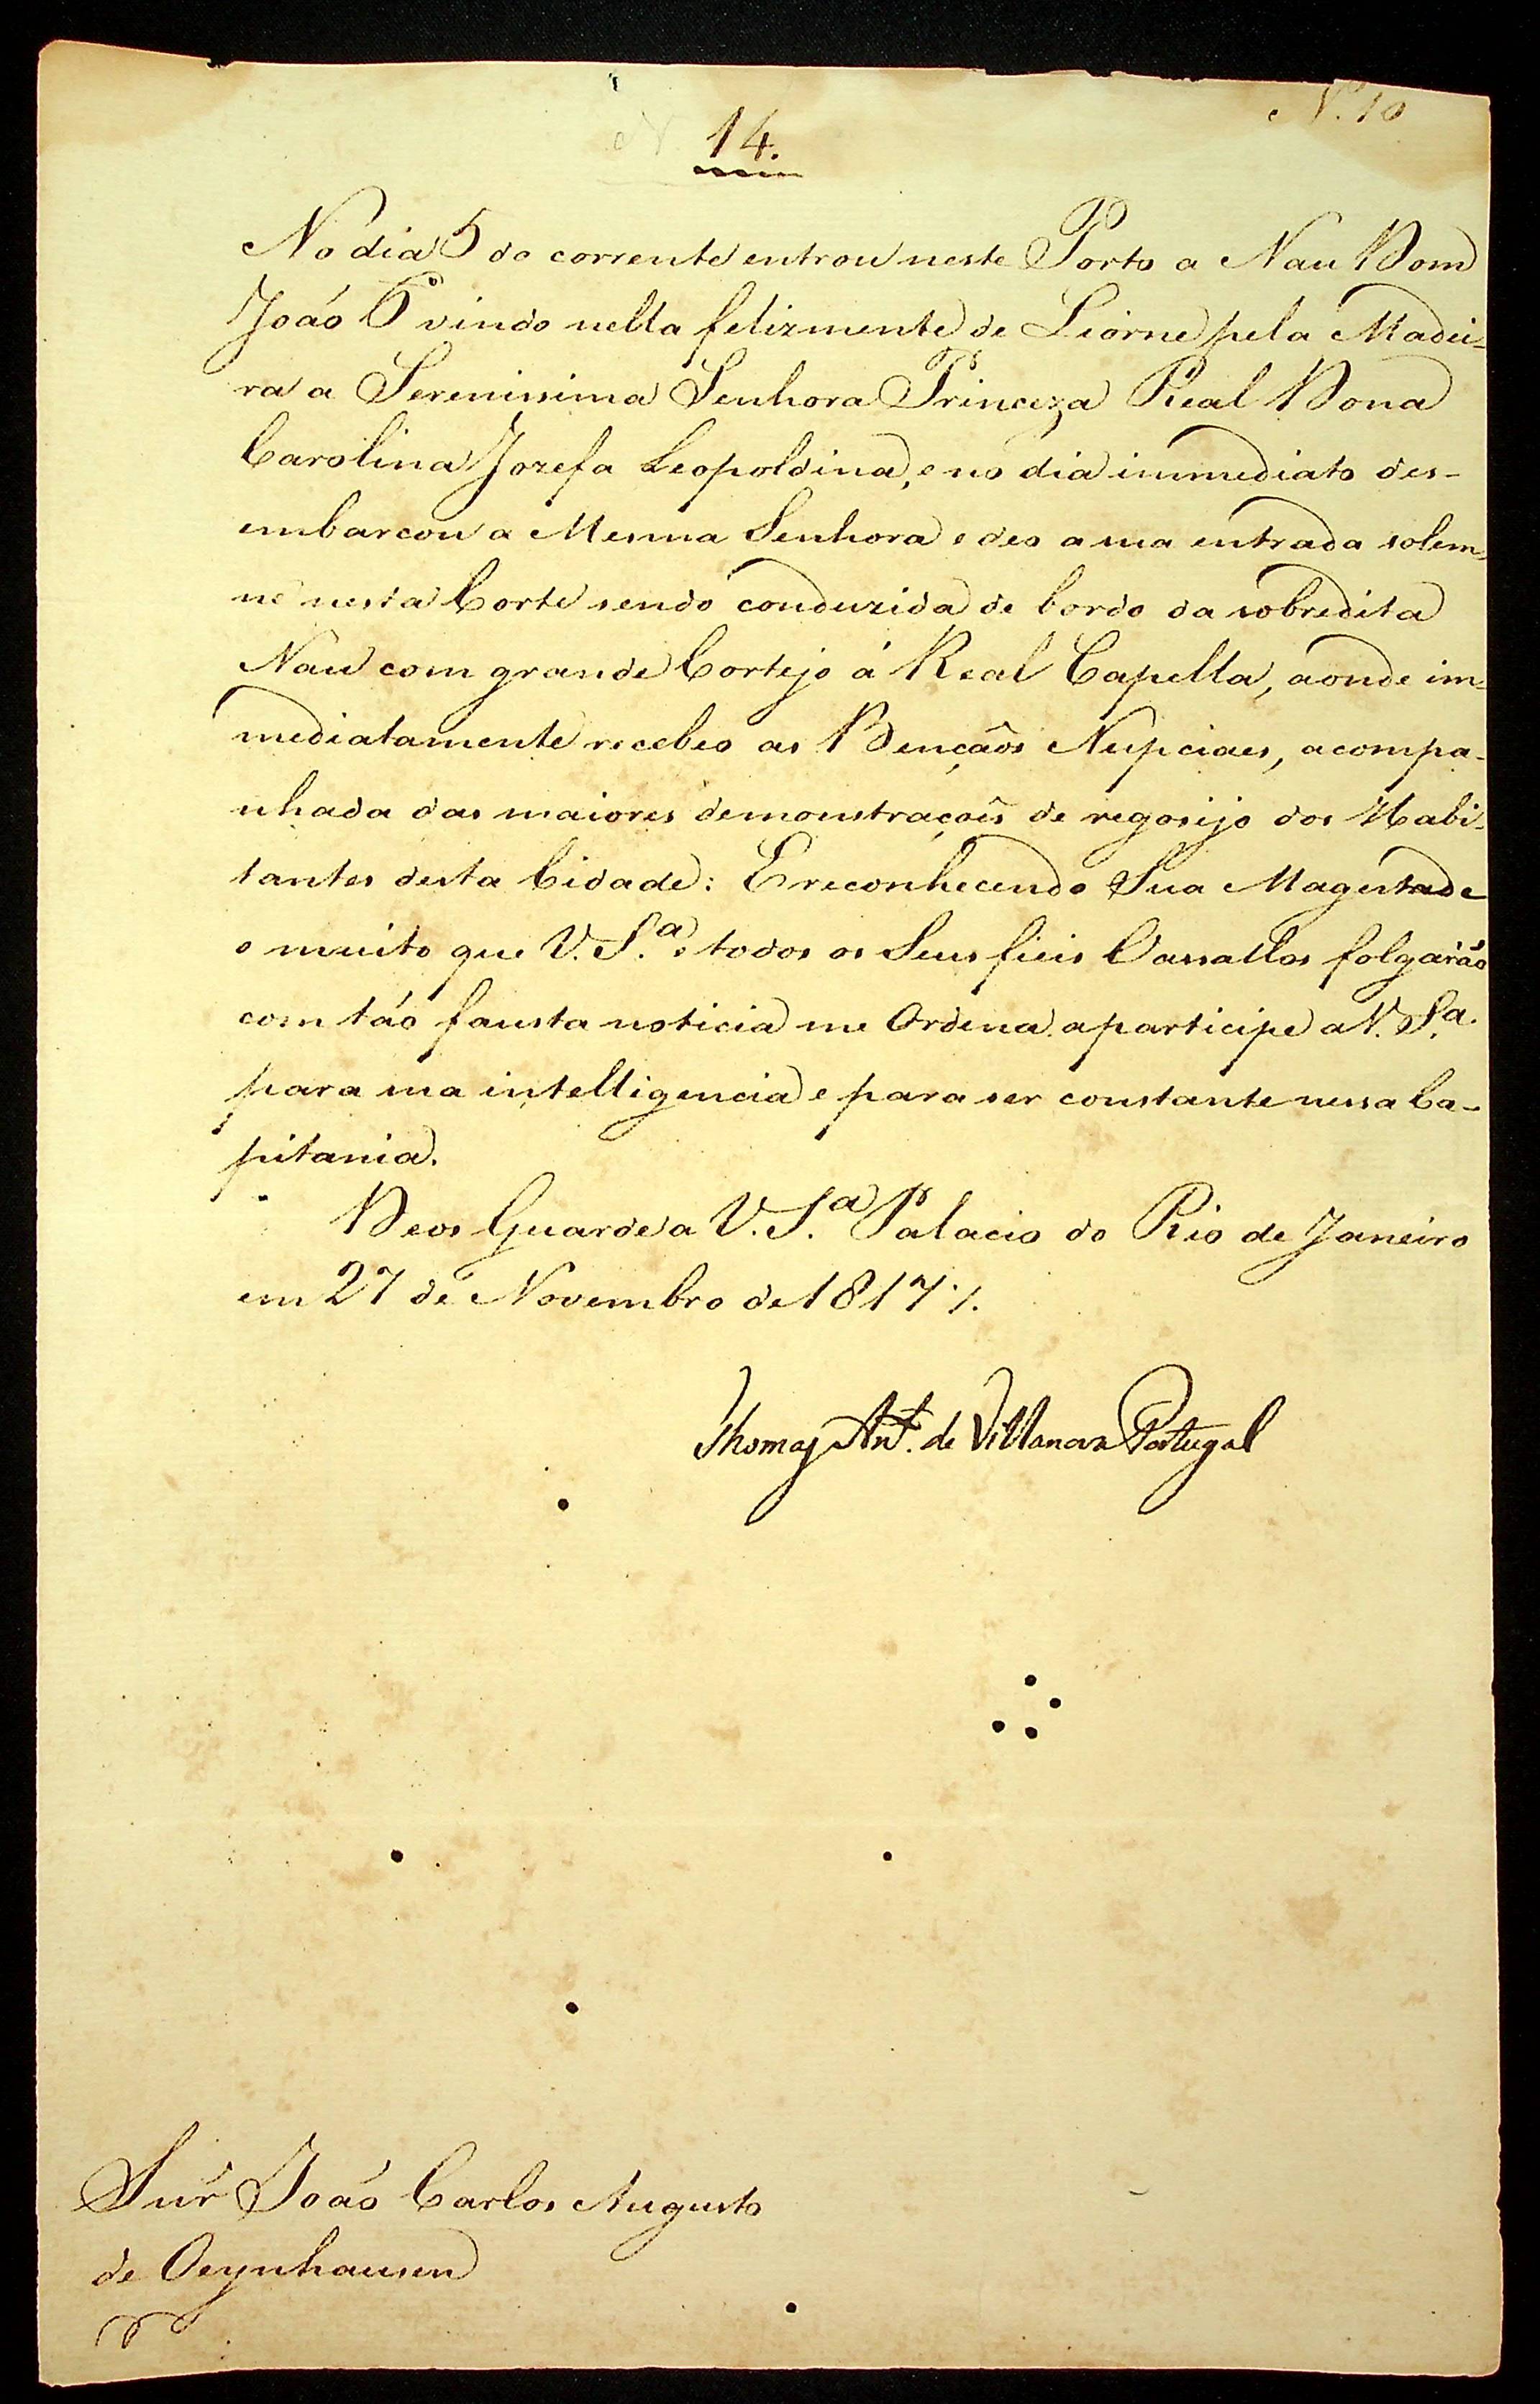 N. 10
N. 14.
No dia 5 do corrente entrou neste Porto a Nau Dom
João 6º vindo nella felizmente de Liorne pela Madei-
ra a Serenissima Senhora Princeza Real Dona
Carolina Jozefa Leopoldina, e no dia immediato des-
embarcou a Mesma Senhora e deo a sua entrada solem-
ne nesta Corte sendo conduzida de bordo da sobredita
Nau com grande Cortejo á Real Capella, aonde im-
mediatamente recebeo as Bençãos Nupciaes, acompa-
nhada das maiores demonstraçoẽs de regosijo dos Habi-
tantes desta Cidade: E reconhecendo Sua Magestade
o muito que V. S.ª e todos os Seus fieis Vassallos folgarão
com tão fausta noticia me Ordena a participe a V. S.ª
para sua intelligencia e para ser constante nessa Ca-
pitania.
Deos Guarde a V. S.ª Palacio do Rio de Janeiro
em 27 de Novembro de 1817 ./.
Thomaz Ant.º de Villanova Portugal
Snr̃ João Carlos Augusto
de Oeynhausen